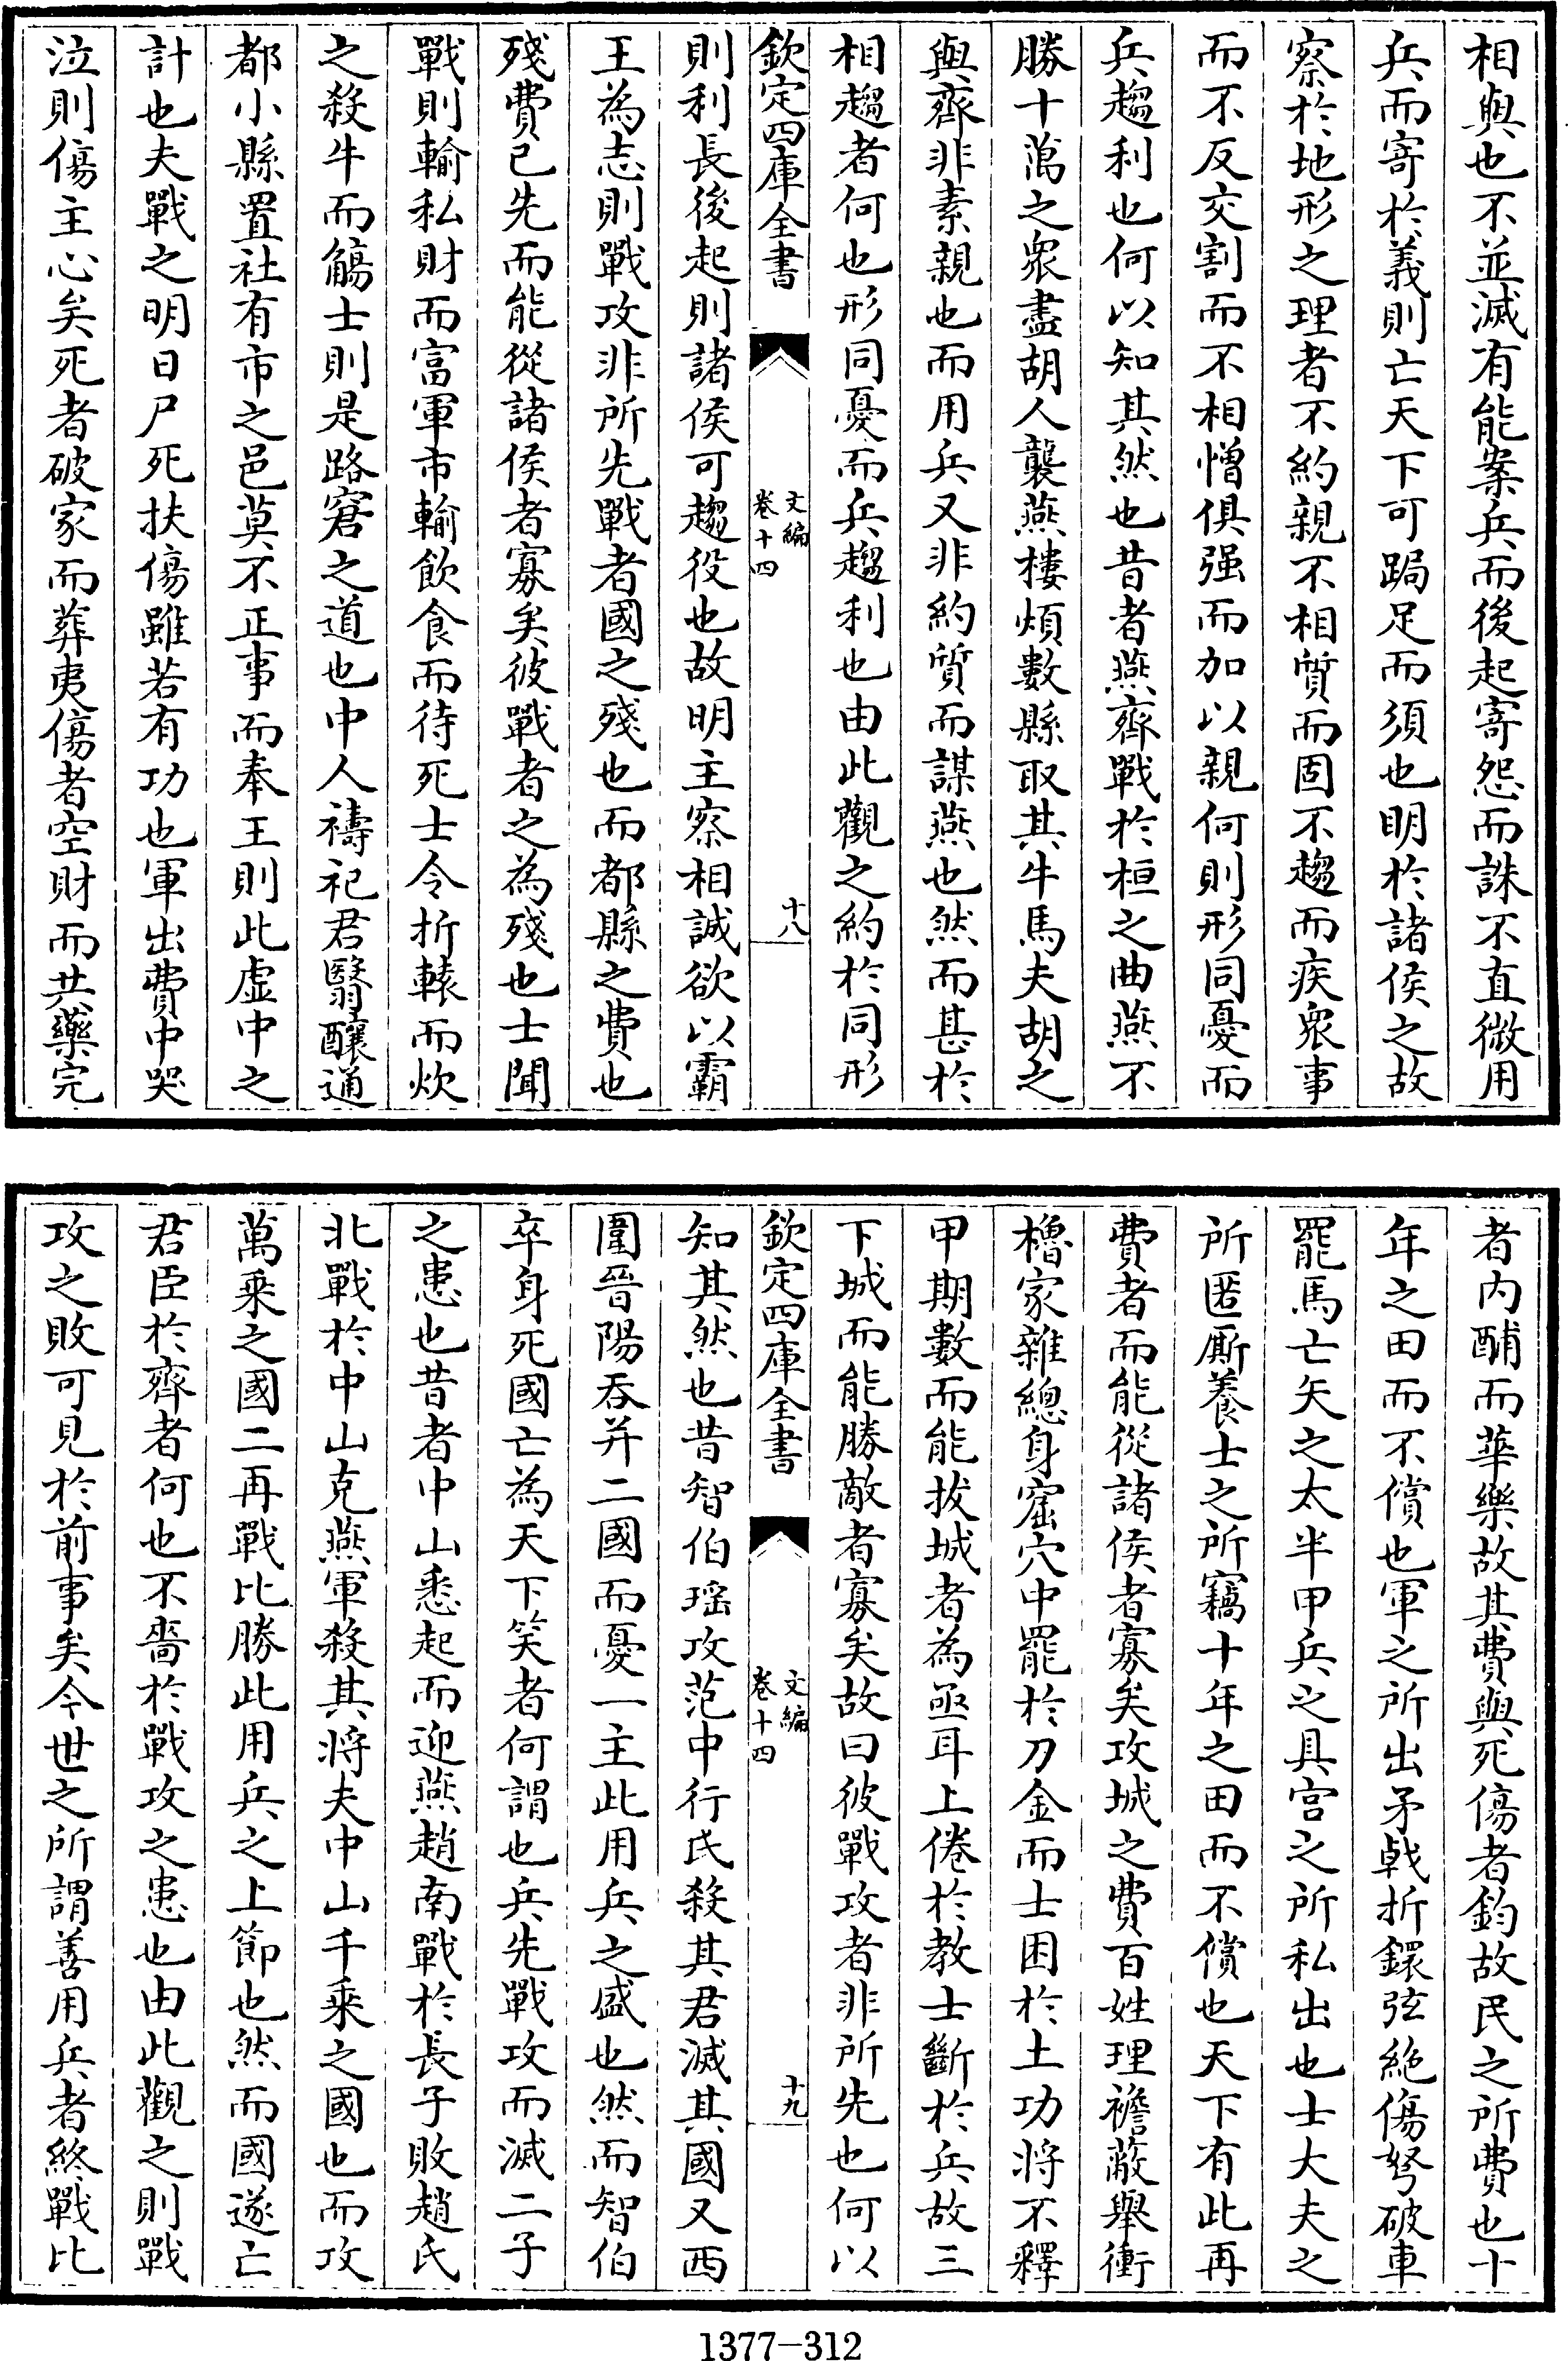 相與也不並滅有能案兵而後起寄怨而誅不直微用
兵而寄於義則亡天下可跼足而須也明於諸侯之故
察於地形之理者不約親不相質而固不趨而疾衆事
而不反交割而不相憎俱强而加以親何則形同憂而
兵趨利也何以知其然也昔者燕齊戰於桓之曲燕不
勝十萬之衆盡胡人襲燕樓煩數縣取其牛馬夫胡之
與齊非素親也而用兵又非約質而謀燕也然而甚於
相趨者何也形同憂而兵趨利也由此觀之約於同形
欽定四庫全書
文編
卷十四
十八
則利長後起則諸侯可趨役也故明主察相誠欲以霸
王為志則戰攻非所先戰者國之殘也而都縣之費也
殘費已先而能從諸侯者寡矣彼戰者之為殘也士聞
戰則輸私財而富軍市輸飲食而待死士令折轅而炊
之殺牛而觴士則是路窘之道也中人禱祀君翳釀通
都小縣置社有市之邑莫不正事而奉王則此虛中之
計也夫戰之明日尸死扶傷雖若有功也軍出費中哭
泣則傷主心矣死者破家而葬夷傷者空財而共藥完
者内酺而華樂故其費與死傷者鈞故民之所費也十
年之田而不償也軍之所出矛戟折鐶弦絶傷弩破車
罷馬亡矢之太半甲兵之具宫之所私出也士大夫之
所匿厮養士之所竊十年之田而不償也天下有此再
費者而能從諸侯者寡矣攻城之費百姓理襜蔽舉衝
櫓家雜總身窟穴中罷於刀金而士困於土功將不釋
甲期數而能拔城者為亟耳上倦於教士斷於兵故三
下城而能勝敵者寡矣故曰彼戰攻者非所先也何以
欽定四庫全書
文編
卷十四
十九
知其然也昔智伯瑶攻范中行氏殺其君滅其國又西
圍晉陽吞并二國而憂一主此用兵之盛也然而智伯
卒身死國亡為天下笑者何謂也兵先戰攻而滅二子
之患也昔者中山悉起而迎燕趙南戰於長子敗趙氏
北戰於中山克燕軍殺其將夫中山千乘之國也而攻
萬乘之國二再戰比勝此用兵之上節也然而國遂亡
君臣於齊者何也不嗇於戰攻之患也由此觀之則戰
攻之敗可見於前事矣今世之所謂善用兵者終戰比
1377-312